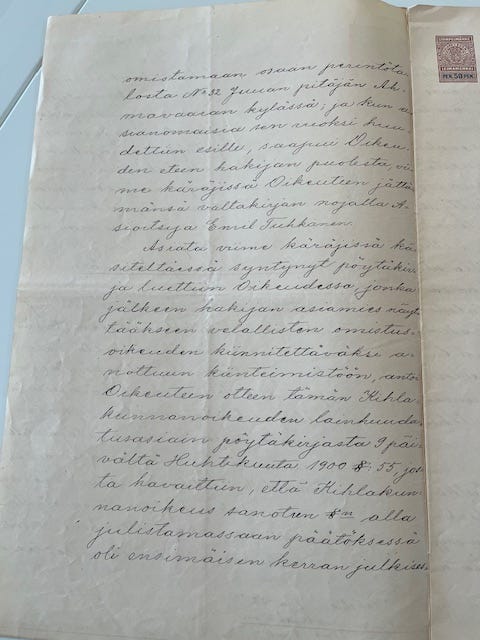 omistamaan osaan perintöta-
losta No 32 Juuan pitäjän Ah-
mavaaran kylässä; ja kun a-
sianomaisia sen vuoksi huu-
dettiin esille, saapui Oikeu-
den eteen hakijan puolesta, vii-
me käräjissä Oikeuteen jättä-
mänsä valtakirjan nojalla A-
sioitsija Emil Tuhkanen.
Asiata viime käräjissä kä-
siteltäessä syntynyt pöytäkir-
ja luettiin Oikeudessa, jonka
jälkeen hakijan asiamies näyt-
tääkseen velallisten omistus-
oikeuden kiinnitettäväksi a-
nottuun kiinteimistöön, antoi
Oikeuteen otteen tämän Kihla-
kunnanoikeuden lainhuuda-
tusasiain pöytäkirjasta 9 päi-
vältä Huhtikuuta 1900 § 55, jos-
ta havaittiin, että Kihlakun-
nanoikeus sanotun §n alla
julistamassaan päätöksessä
oli ensimäisen kerran julkises-
LEIMAMERKKI
PEN. 50 PEN.